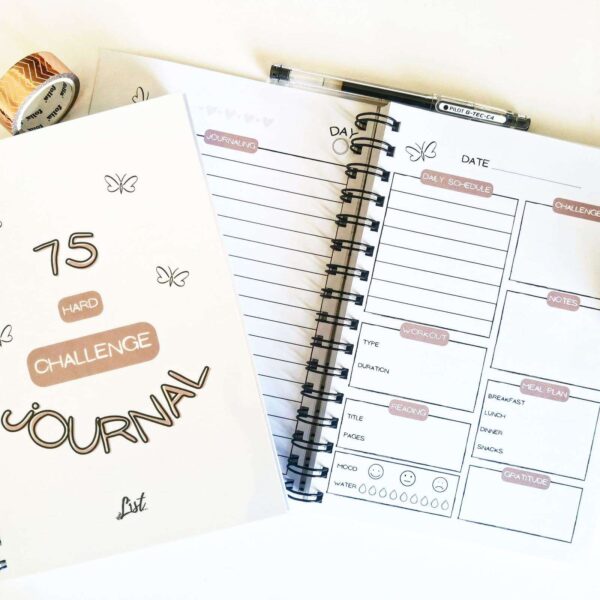 folia
folia
75
HARD
CHALLENGE
JOURNAL
List
JOURNALING
DAY
PILOT G-TEC-C4
DATE
DAILY SCHEDULE
CHALLENGE
NOTES
WORKOUT
TYPE
DURATION
MEAL PLAN
BREAKFAST
LUNCH
DINNER
SNACKS
READING
TITLE
PAGES
MOOD
WATER
GRATITUDE